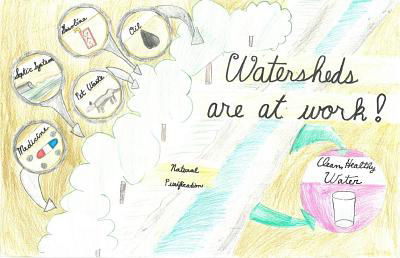 Gasoline
Oil
Septic System
Pet Waste
Medicine
Watersheds
are at work!
Natural
Purification
Clean, Healthy
Water